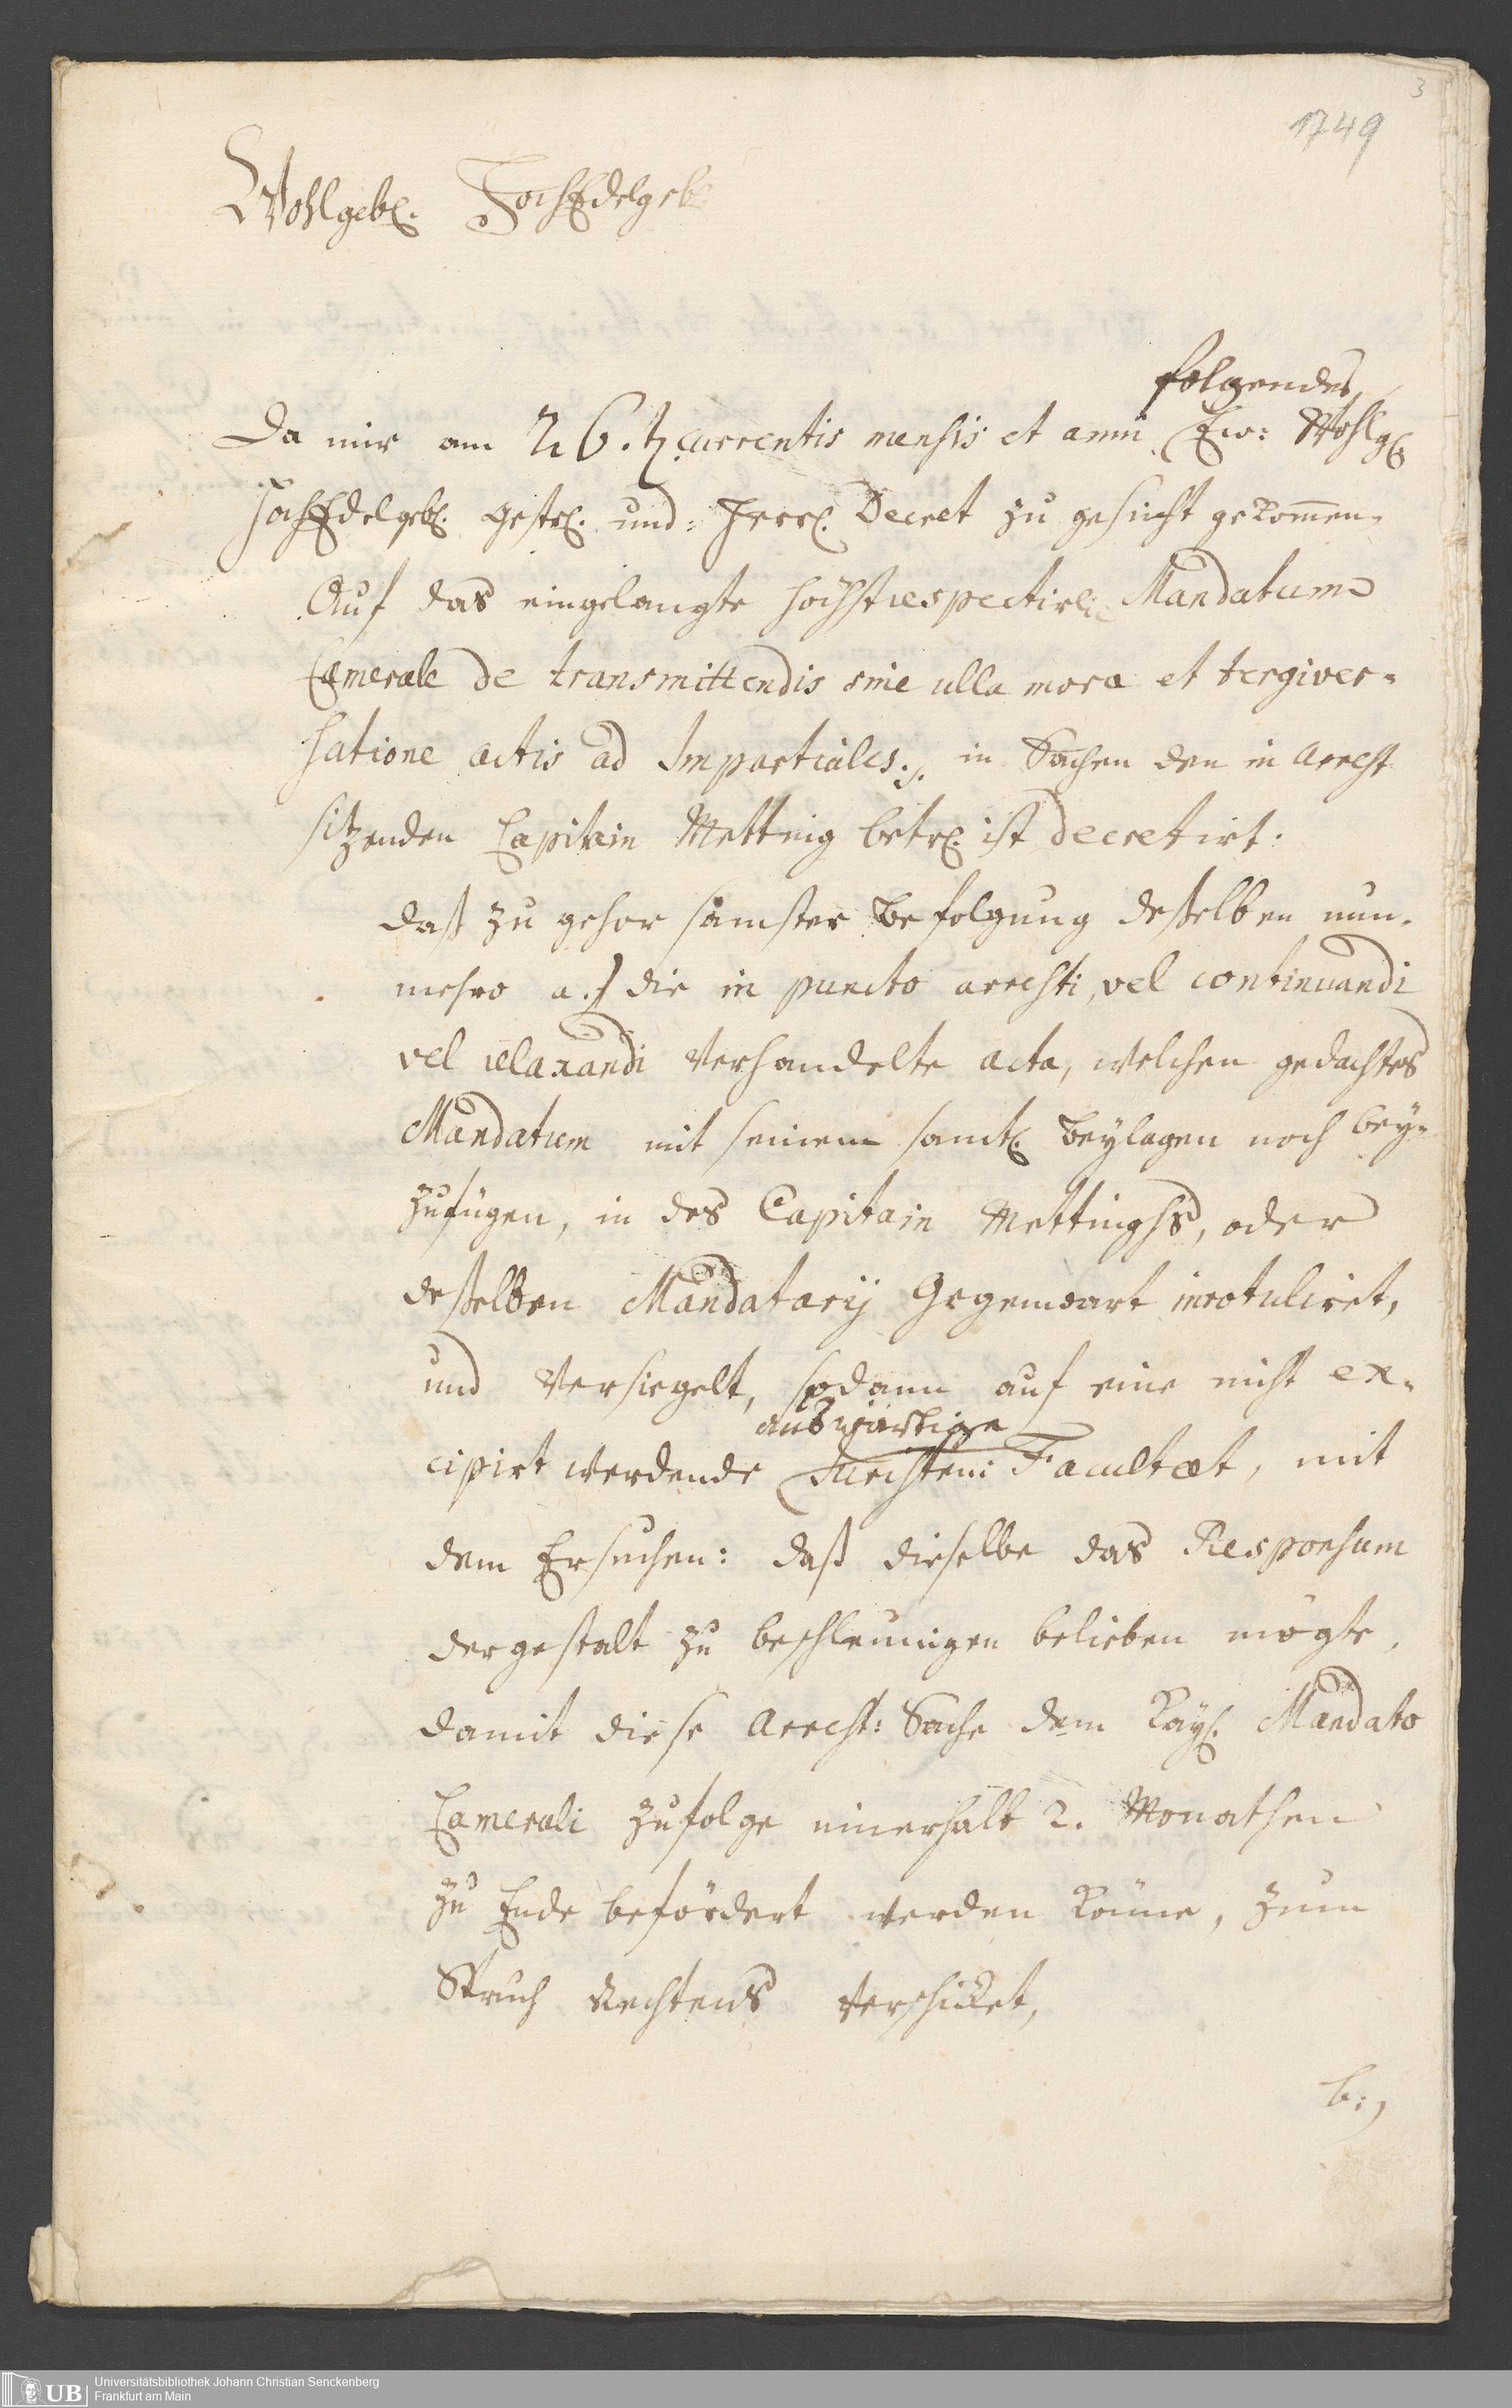 3
1749
Wohlgeb. HochEdelgeb
folgendes
Da mir am 26.ty currentis mensis et anni Ew: Wohlg
HochEdelgeb. Gestr. und: Herrl. Decret zu gesicht gekom̄en.
Auf das eingelangte höchstrespectirl. Mandatum
Camerale de transmittendis sine ulla mora et tergiver=
satione actis ad Impartiales ./. in Sachen den in Arrest
sitzenden Capitain Metting betr. ist decretirt:
daß zu gehorsamster Befolgung deßelben nun=
mehro a.) die in puncto arresti, vel continuandi
vel relaxandi verhandelte acta, welchen gedachtes
Mandatum mit seinem samtl. Beylagen noch bey=
zufügen, in des Capitain Mettinghs, oder
deßelben Mandatarij Gegenwart inrotuliret,
und versiegelt, sodann auf eine nicht ex=
auswärtige
cipirt werdende Juristen: Facultæt, mit
dem Ersuchen: daß dieselbe das Responsum
dergestalt zu beschleunigen belieben mögte,
damit diese Arrest: Sache dem Kays. Mandato
Camerali zufolge innerhalb 2. Monathen
zu Ende befördert werden könne, zum
Spruch Rechtens verschicket,
b.)
UB
Universitätsbibliothek Johann Christian Senckenberg
Frankfurt am Main